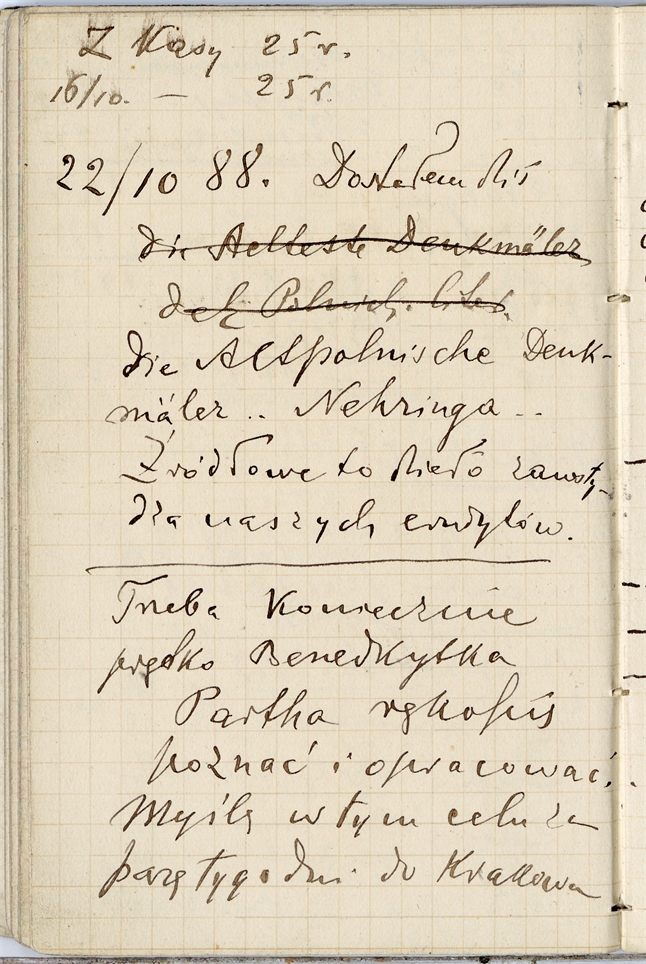 Z Kasy 25 r.
16/10. — 25 r.
22/10 88. Dostałem dziś
die Aelteste Denkmäler
der Polnisch. liter.
die Altpolnische Denk-
mäler .. Nehringa ..
Źródłowe to dzieło zawsty-
dza naszych erudytów.
Trzeba Koniecznie
prędko Benedkytka
Partha rękopis
poznać i opracować.
Myślę w tym celu za
parę tygodni do Krakowa